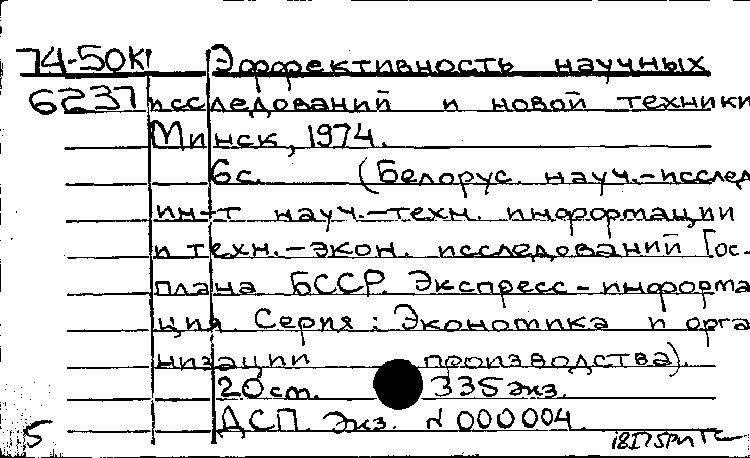 74-50К Эффективность научных
6237 исследований и новой техники
Минск, 1974.
6с. (Белорус. науч.-исслед
ин-т науч.-техн. информации
и техн.-экон. исследований Гос-
плана БССР. Экспресс-информа
ция. Серия: Экономика и орга
низации производства).
20 см. 335 экз.
ДСП. Экз. N 000004.
5